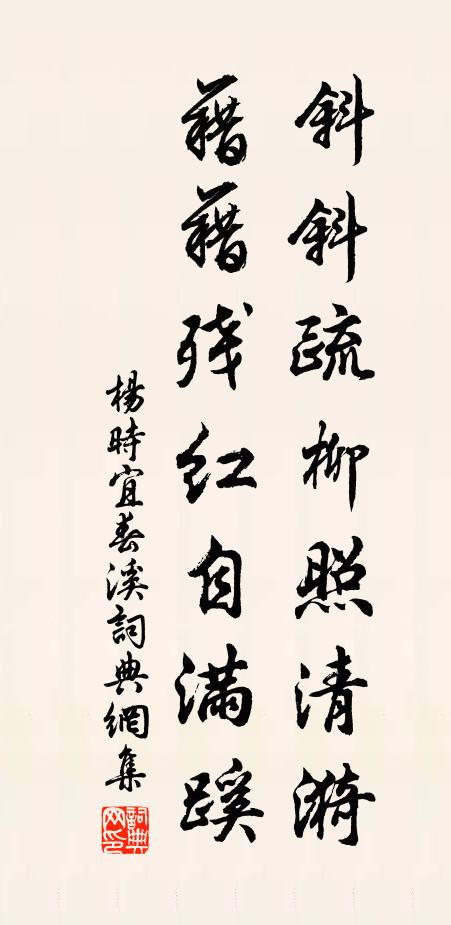 斜斜疏柳照清漪
藉藉残红自满蹊
楊時宜春溪詞典網集
詞典网印